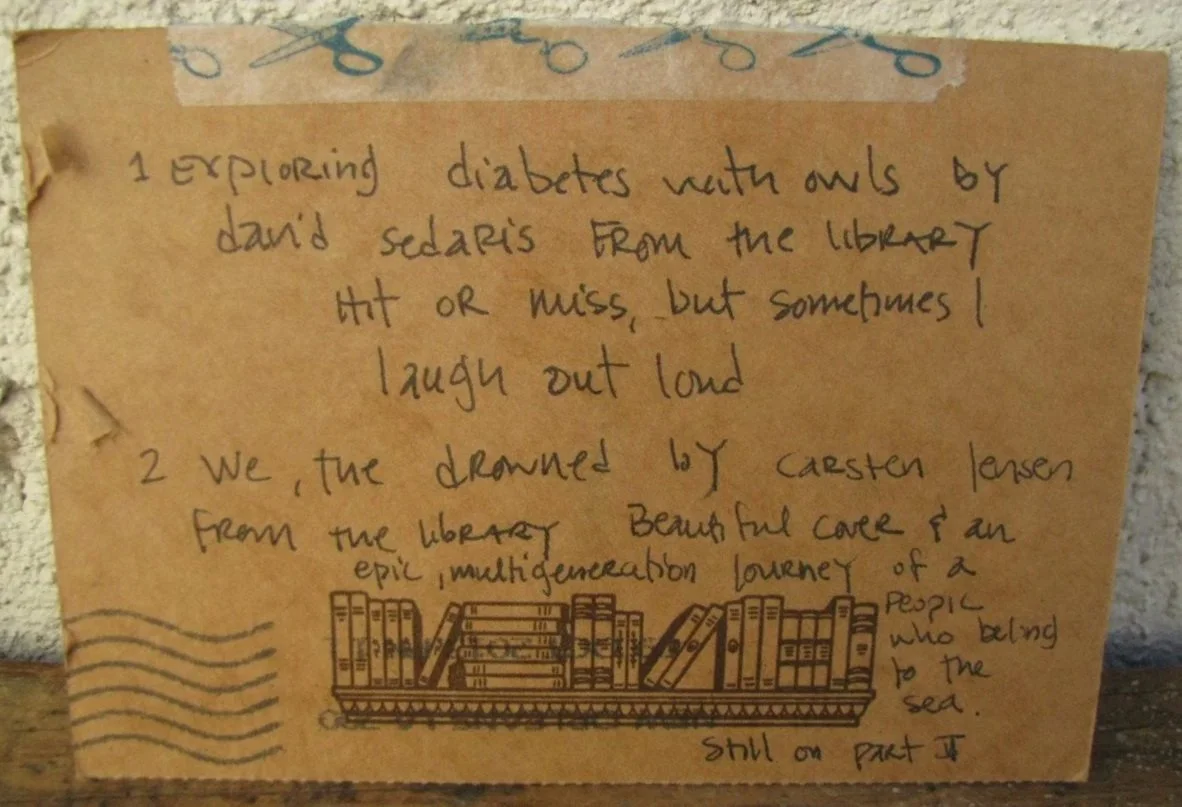 1 Exploring diabetes with owls by
david sedaris From the library
Hit or miss, but sometimes I
laugh out loud
2 We, the drowned by carsten Jensen
From the library Beautiful cover & an
epic, multigeneration journey of a
people
who belong
to the
sea.
Still on part II